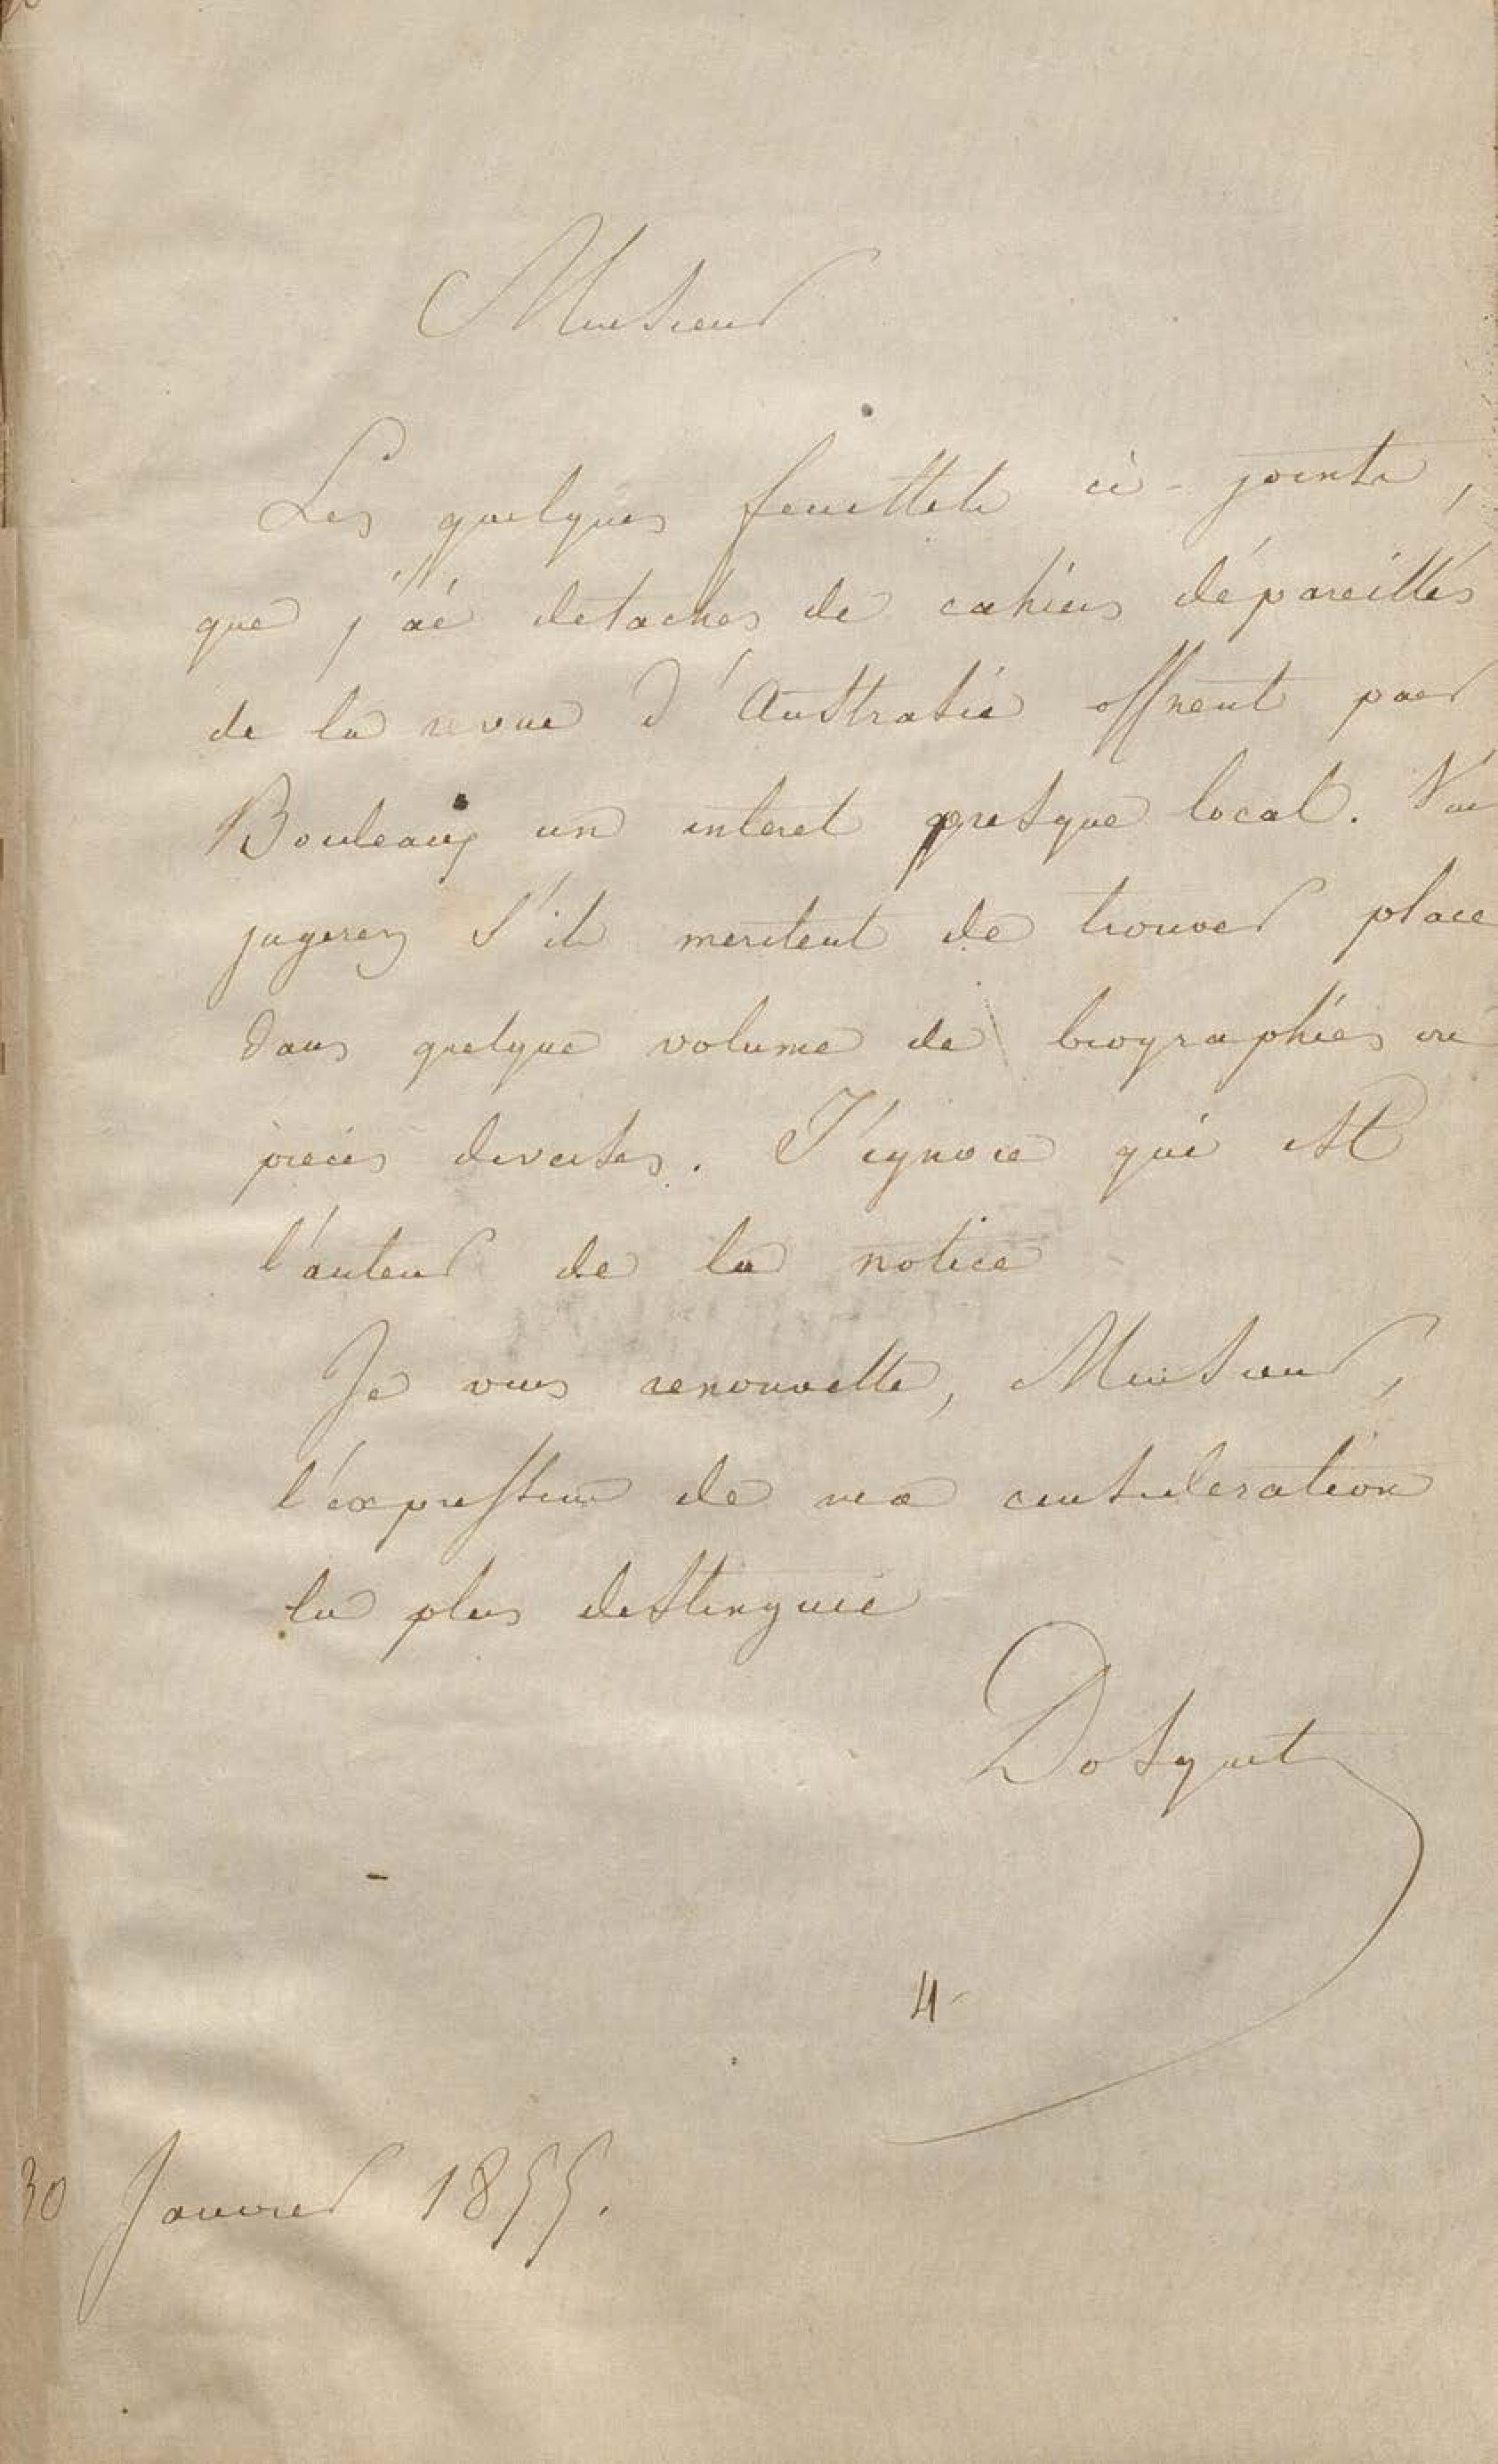 Monsieur
Les quelques feuillets ci-joints,
que j'ai détachés de cahiers dépareillés
de la revue d'Austrasie offrent pour
Bordeaux un interet presque local. Vous
jugerez s'ils meritent de trouver place
dans quelque volume de biographies ou
pieces diverses. J'ignore qui est
l'auteur de la notice
Je vous renouvelle, Monsieur,
l'expression de ma consideration
la plus distinguée
Dosquet
4
30 Janvier 1855.